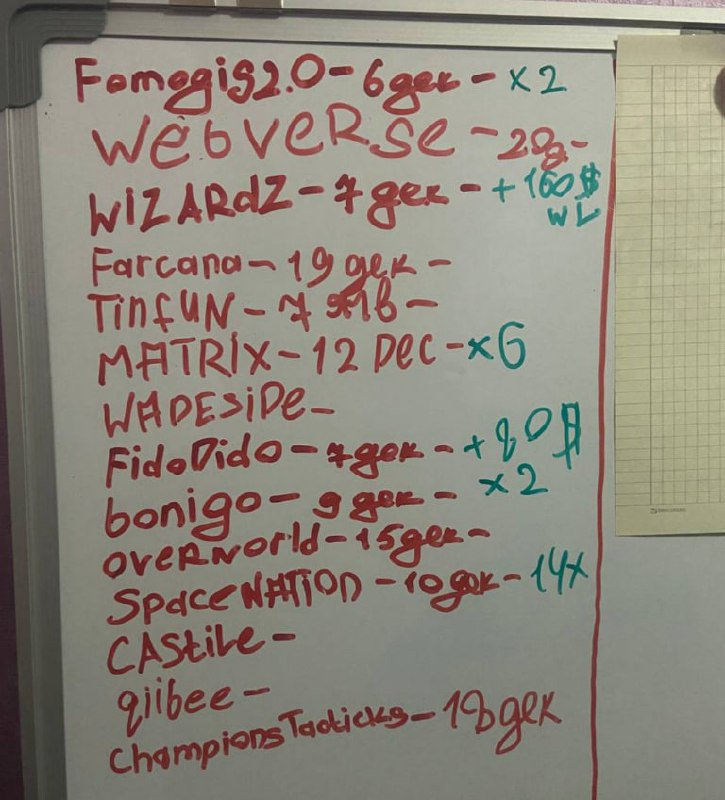 Fomogis2.0 - 6gek - x2
WebVERSe - 20g -
WiZARdZ - 7gek - +160$
WL
Farcana - 19 gek -
TinfuN -
MATRiX - 12 Dec - x6
WADESiDe -
FidoDido - 7gek - +80$
bonigo - 9 gek - x2
OVERWorld - 15gek -
SpaceNATiON - 10gek - 14x
CAStile -
qiibee -
ChampionsTacticks - 18gek